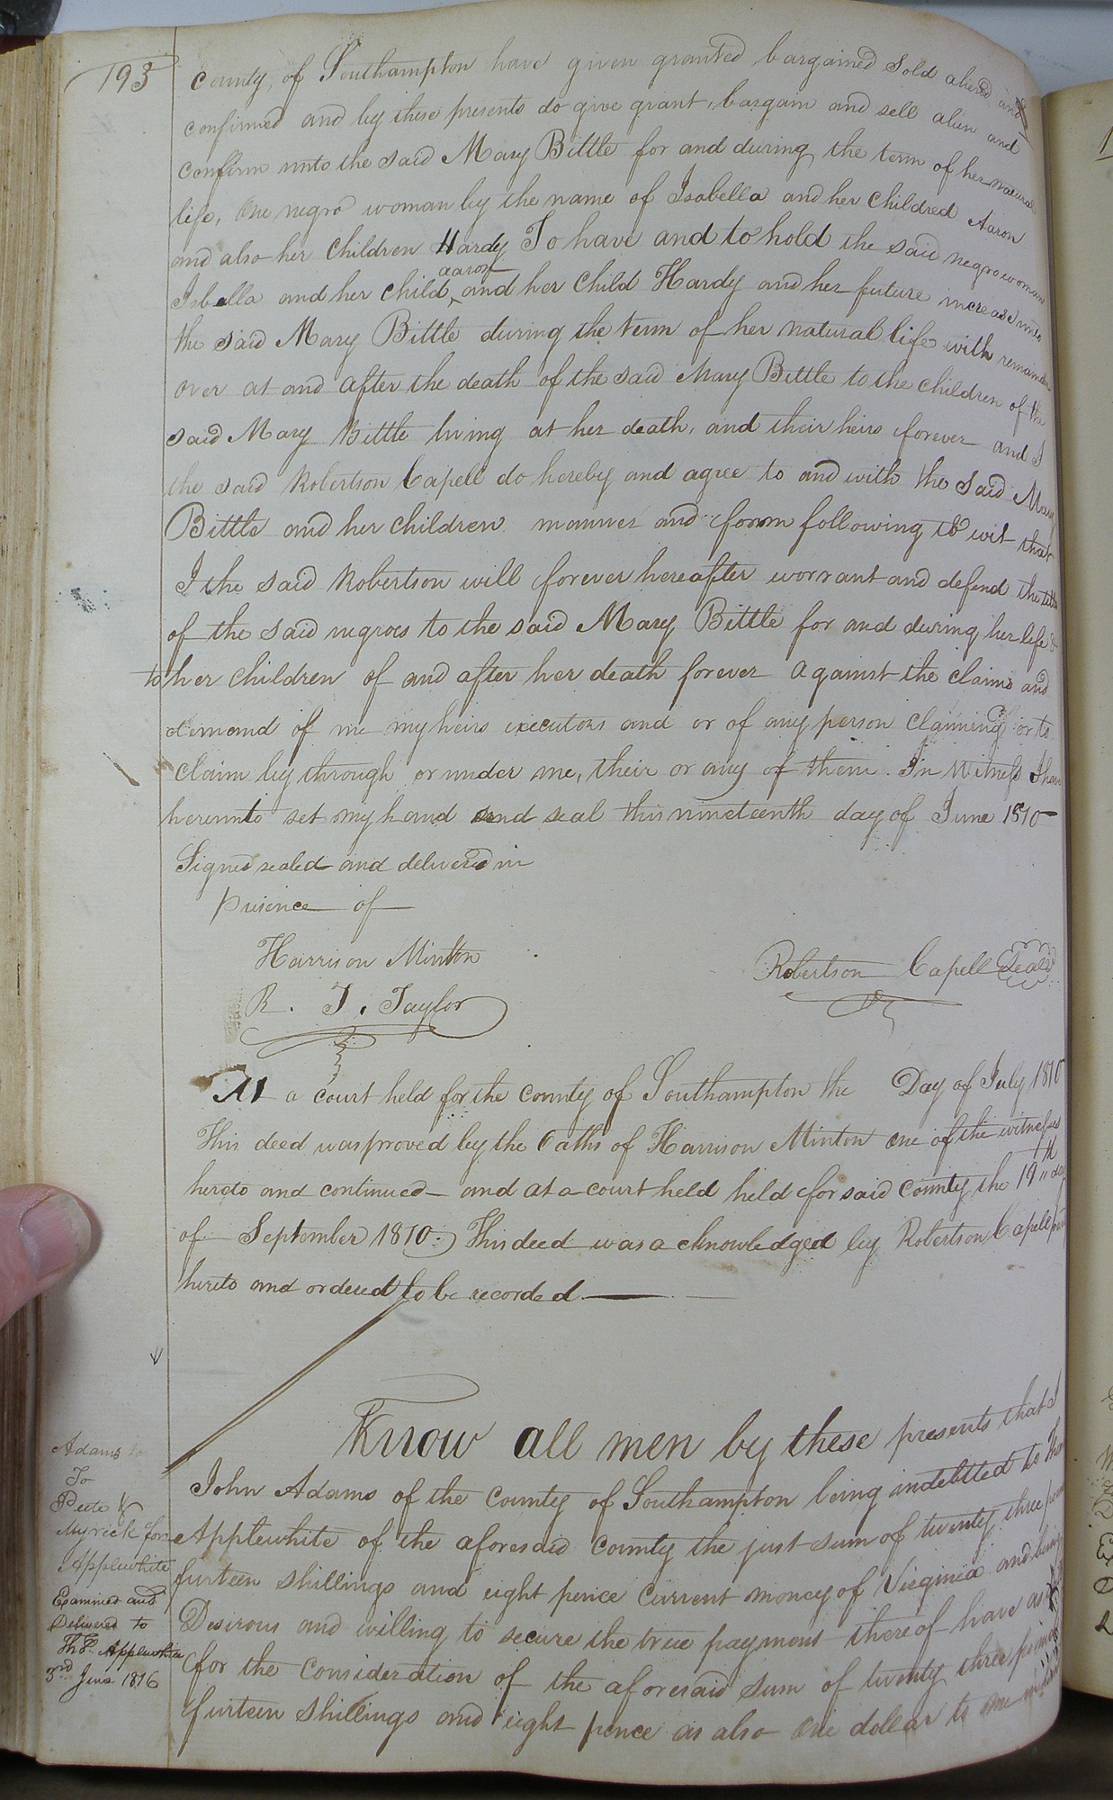 193
County, of Southampton have given granted bargained sold aliened and
confirmed and by these presents do give grant, bargain and sell alien and
confirm unto the said Mary Bittle for and during the term of her natural
life, One negro woman by the name of Isabella and her Childred Aaron
and also her Children Hardy To have and to hold the said negro woman
aaron
Isbella and her Child and her Child Hardy and her future increase unto
the said Mary Bittle during the term of her natural life with remainder
over at and after the death of the said Mary Bittle to the Children of the
said Mary Bittle living at her death, and their heirs forever and I
the said Robertson Capell do hereby and agree to and with the said Mary
Bittle and her Children manner and form following to wit that
I the said Robertson will forever hereafter worrant and defend the title
of the said negroes to the said Mary Bittle for and during her life &
to her Children of and after her death forever against the claims and
demand of me my heirs executors and or of any person Claiming or to
Claim by through or under me, their or any of them. In Witness I have
hereunto set my hand and seal this nineteenth day of June 1810
Signed sealed and delivered in
presence of
Harrison Minton
Robertson Capell Seal
R. J. Taylor
At a court held for the county of Southampton the Day of July 1810
This deed was proved by the Oaths of Harrison Minton one of the witnesses
hereto and continued and at a court held held for said County the 19th day
of September 1810 This deed was acknowledged by Robertson Capell
hereto and ordered to be recorded
Know all men by these presents that I
John Adams of the County of Southampton being indebtted to
Applewhite of the aforesaid County the just sum of twenty three
furteen shillings and eight pence Current money of Virginia and being
Desirous and willing to secure the true payment thereof have as
for the Consideration of the aforesaid sum of twenty three pounds
furteen shillings and eight pence as also One dollar to me
Adams
To
Peete &
Myrick for
Applewhite
Examined and
Delivered to
Ths. Applewhite
3rd June 1816